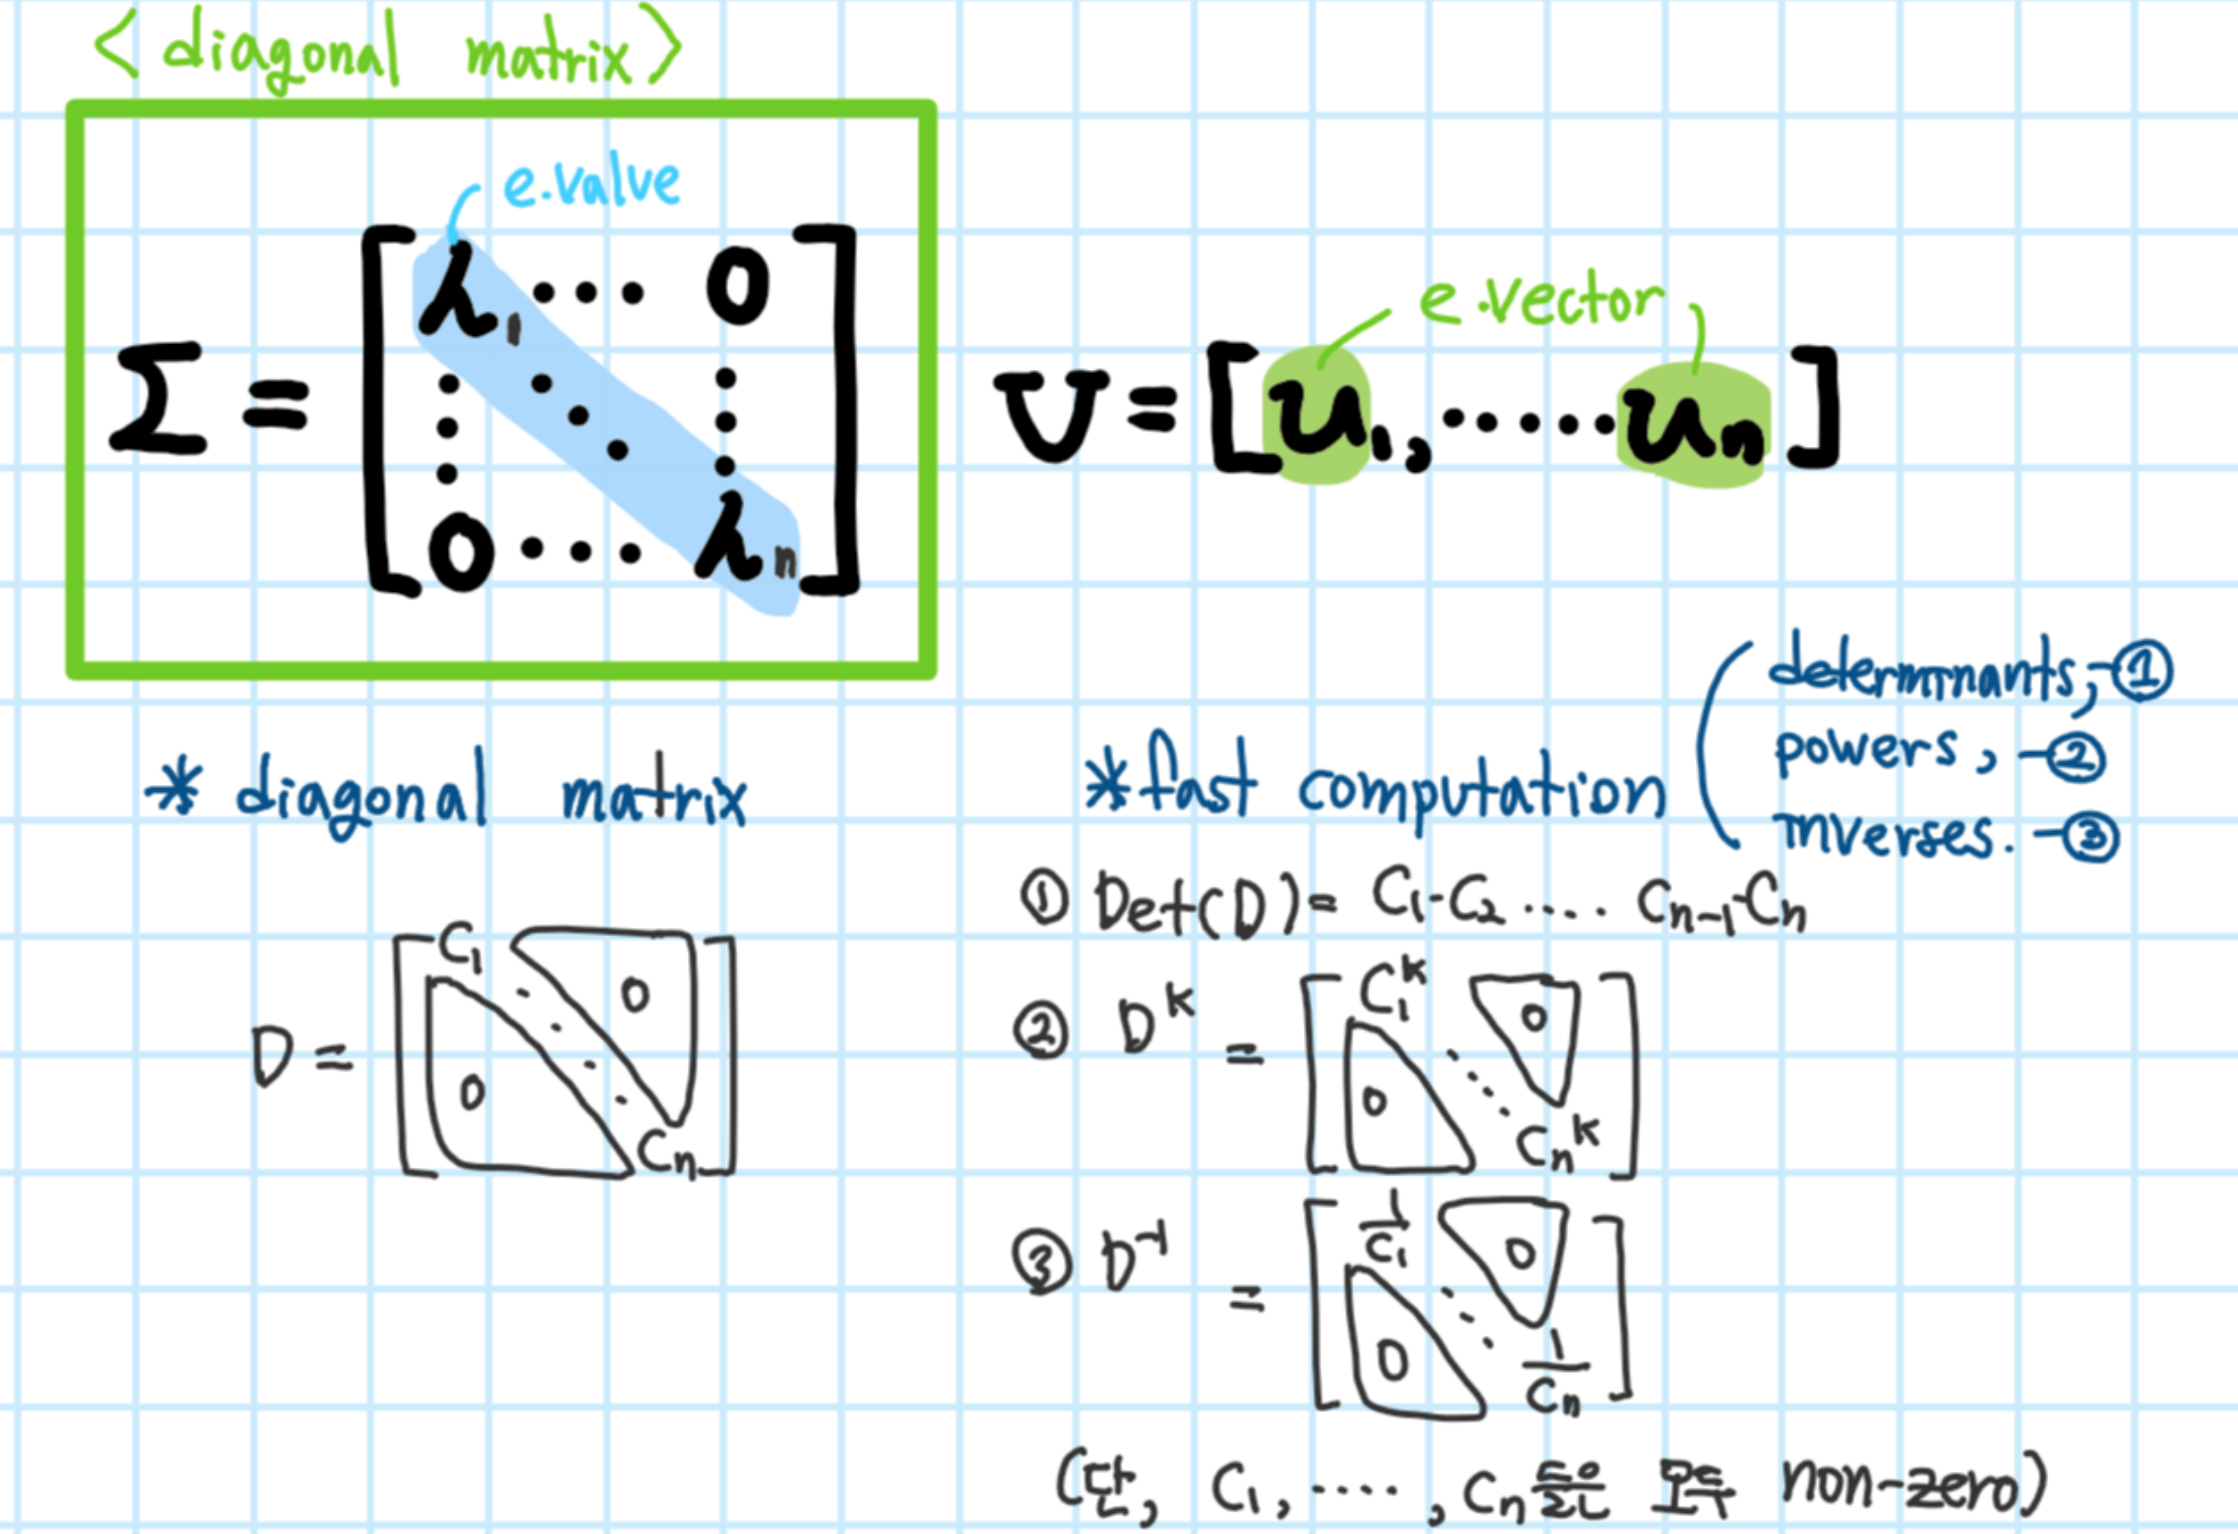 <diagonal matrix>
e.value
Σ = [ λ₁ ··· 0
⋮ ⋱ ⋮
0 ··· λₙ ]
e.vector
U = [u₁, ····· uₙ]
* diagonal matrix
D = [ C₁ 0
⋱
0 Cₙ ]
* fast computation
( determinants, - ①
powers, - ②
inverses. - ③
① Det(D) = C₁·C₂ ···· Cₙ₋₁·Cₙ
② Dᵏ = [ C₁ᵏ 0
⋱
0 Cₙᵏ ]
③ D⁻¹ = [ 1/C₁ 0
⋱
0 1/Cₙ ]
(단, C₁, ····, Cₙ들은 모두 non-zero)